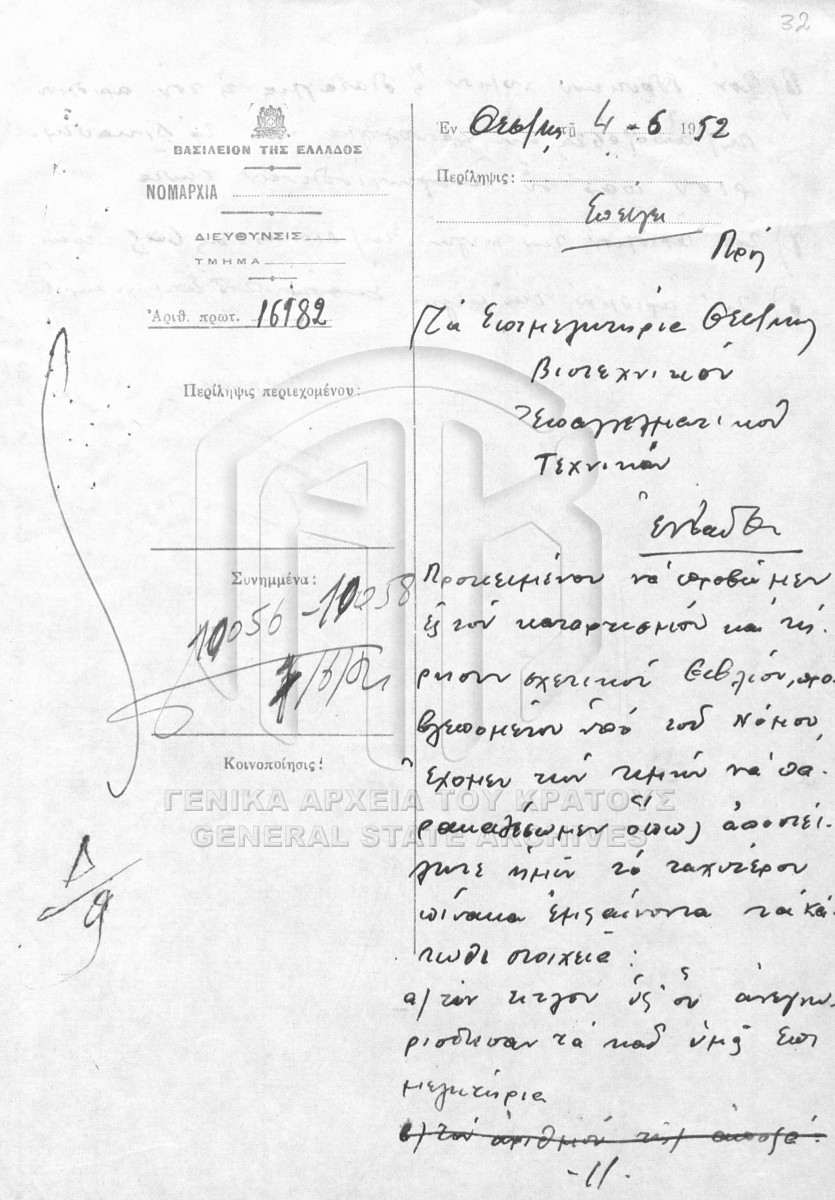 32
ΒΑΣΙΛΕΙΟΝ ΤΗΣ ΕΛΛΑΔΟΣ
ΝΟΜΑΡΧΙΑ
ΔΙΕΥΘΥΝΣΙΣ
ΤΜΗΜΑ
Ἀριθ. πρωτ. 16982
Περίληψις περιεχομένου:
Συνημμένα:
10056-10058
Κοινοποίησις:
Ἐν Θεσ/κῃ τῇ 4-6 1952
Περίληψις:
Ἐπείγει
Πρὸς
Τὰ Ἐπιμελητήρια Θεσ/κης
Βιοτεχνικὸν
Ἐπαγγελματικὸν
Τεχνικὸν
Ἐνταῦθα
Προκειμένου νὰ προβῶμεν
εἰς τὸν καταρτισμὸν καὶ τή-
ρησιν σχετικοῦ βιβλίου, προ-
βλεπομένου ὑπὸ τοῦ Νόμου,
ἔχομεν τὴν τιμὴν νὰ πα-
ρακαλέσωμεν ὅπως ἀποστεί-
λητε ἡμῖν τὸ ταχύτερον
πίνακα ἐμφαίνοντα τὰ κά-
τωθι στοιχεῖα:
α) τὸν τίτλον ὑφ' ὃν ἀνεγνω-
ρίσθησαν τὰ καθ' ὑμᾶς Ἐπι
μελητήρια
β) τὸν ἀριθμὸν τῆς ἀποφά-
-//.
ΓΕΝΙΚΑ ΑΡΧΕΙΑ ΤΟΥ ΚΡΑΤΟΥΣ
GENERAL STATE ARCHIVES